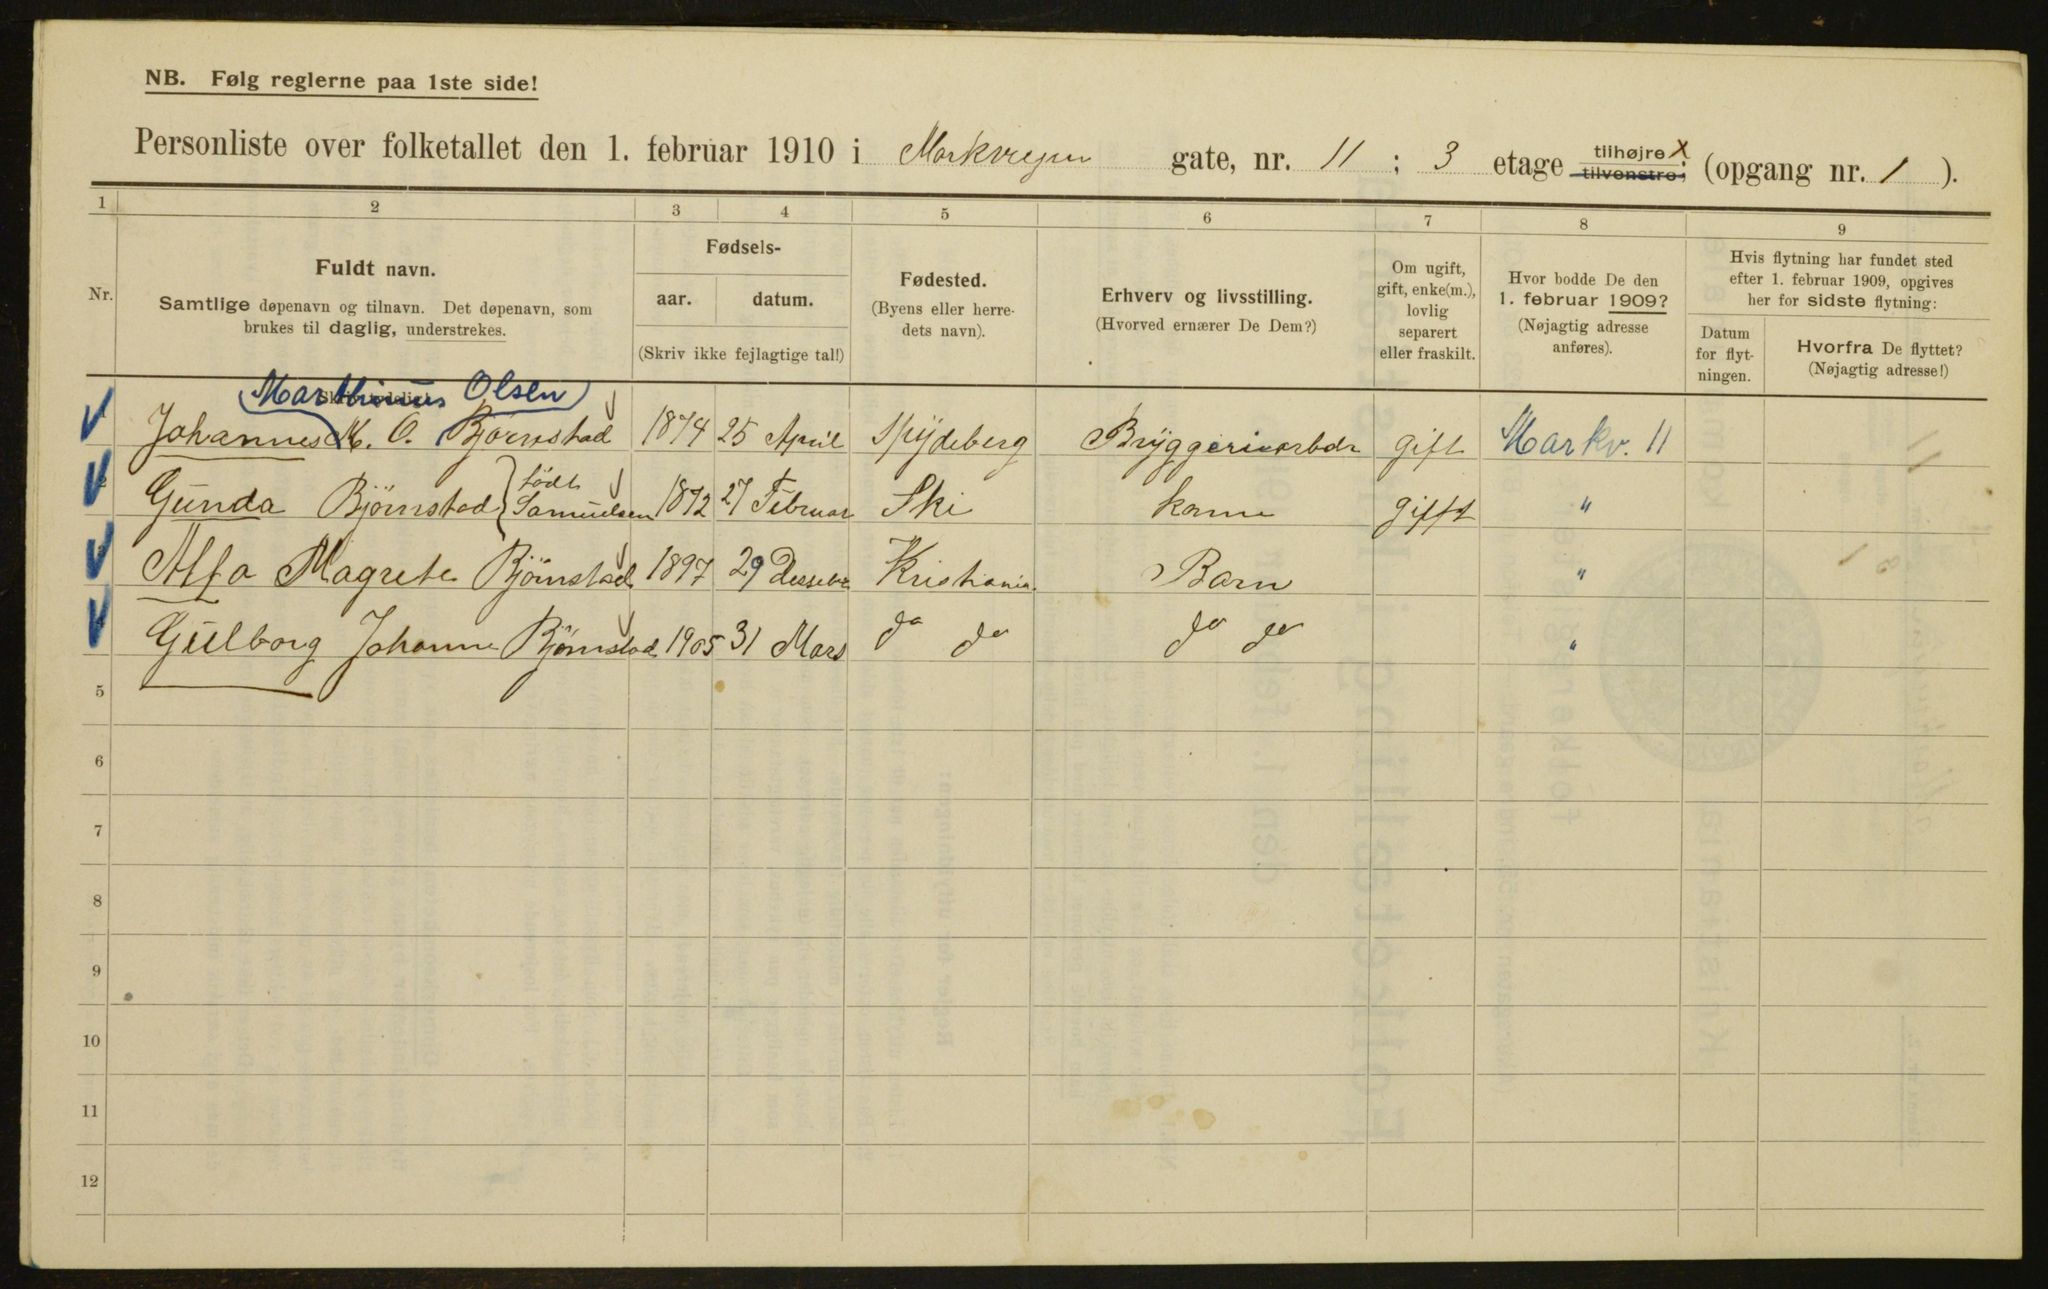 NB. Følg reglerne paa 1ste side!
Personliste over folketallet den 1. februar 1910 i Markveyen gate, nr. 11 ; 3 etage tilhøjre X tilvenstre; (opgang nr. 1 ).
1 2 3 4 5 6 7 8 9
Nr.
Fuldt navn.
Samtlige døpenavn og tilnavn. Det døpenavn, som
brukes til daglig, understrekes.
Fødsels-
aar. datum.
(Skriv ikke fejlagtige tal!)
Fødested.
(Byens eller herre-
dets navn).
Erhverv og livsstilling.
(Hvorved ernærer De Dem?)
Om ugift,
gift, enke(m.),
lovlig
separert
eller fraskilt.
Hvor bodde De den
1. februar 1909?
(Nøjagtig adresse
anføres).
Hvis flytning har fundet sted
efter 1. februar 1909, opgives
her for sidste flytning:
Datum
for flyt-
ningen.
Hvorfra De flyttet?
(Nøjagtig adresse!)
Marthinus Olsen
Johannes M. O. Bjørnstad 1874 25 April Spydeberg Bryggeriarbdr gift Markv. 11
Gunda Bjørnstad født Samuelsen 1872 27 Februar Ski kone gift "
Alfa Magrete Bjørnstad 1897 29 Dessebr Kristiania Barn "
Gulborg Johanne Bjørnstad 1905 31 Mars do do do do "
5
6
7
8
9
10
11
12